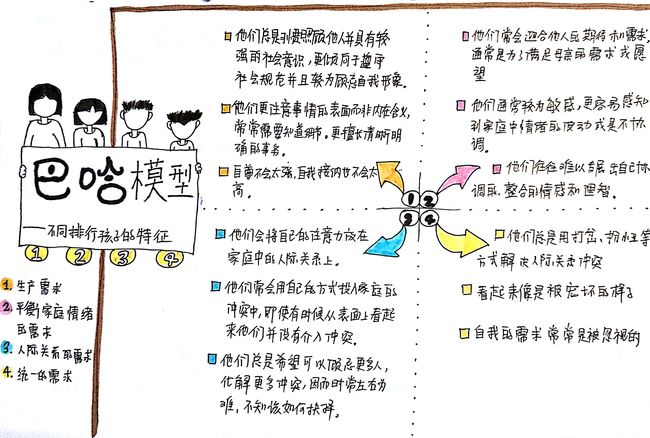 巴哈模型
一不同排行孩子的特征
1 2 3 4
1. 生产需求
2. 平衡家庭情绪
的需求
3. 人际关系的需求
4. 统一的需求
他们总是到要照顾他人并具有较
强的社会意识,更倾向于遵守
社会规范并且较为顾忌自我形象。
他们更注意事情的表面而非内在含义,
常常需要知道细节。更擅长清晰明
确的事务。
自尊不会太强,自我接纳也不会太
高。
他们常会迎合他人的期待和需求,
通常是为了满足母亲的需求或愿
望
他们通常较为敏感,更容易感知
到家庭中情绪的波动或是不协
调。
他们往往难以
自己协
调或整合的情感和理智。
1 2
3 4
他们会将自己的注意力放在
家庭中的人际关系上。
他们常会用自己的方式投入家庭的
冲突中,即使有时候从表面上看起
来他们并没有介入冲突。
他们总是希望可以顾忌更多人,
化解更多冲突,因而时常左右为
难,不知该如何抉择。
他们总是用打岔、
等
方式解决人际关系冲突
看起来像是被宠坏的样子
自我的需求常常是被忽视的